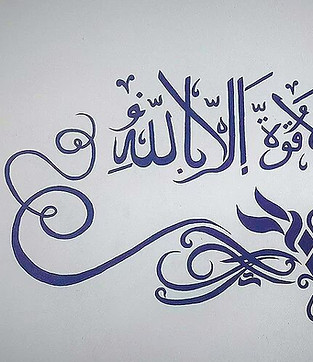 قوة إلا بالله